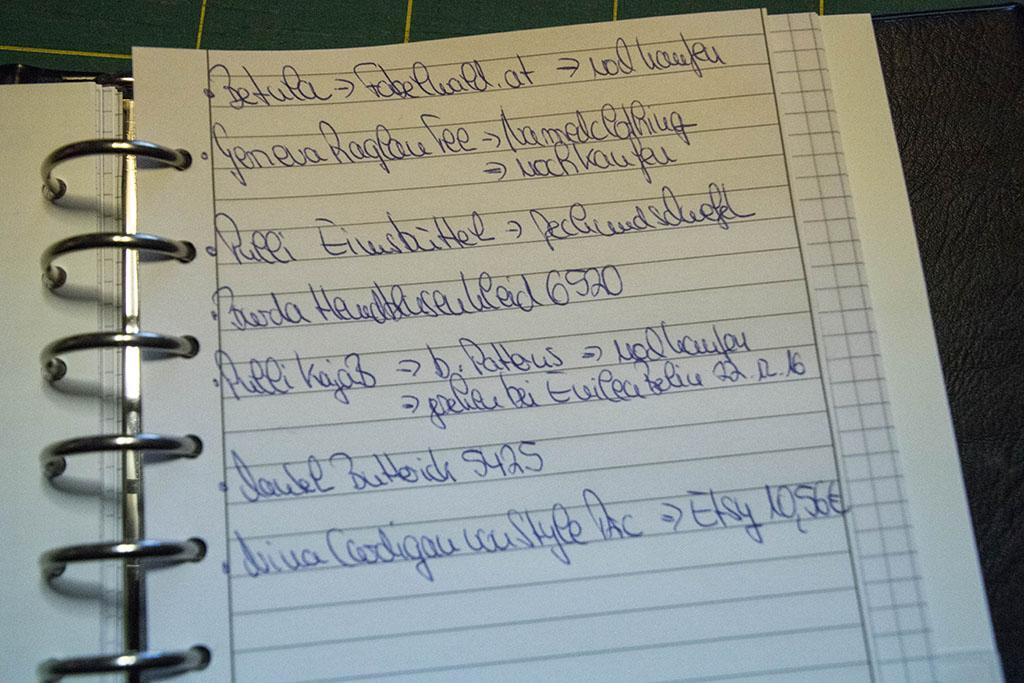 Betula → Fabelwald.at → noch kaufen
Geneva Raglan Tee → Namedclothing
→ noch kaufen
Pulli Eimsbüttel → Pechundschwefel
Burda Hemdblusenkleid 6520
Pulli → b. Pattens → noch kaufen
→ gesehen bei 22.12.16
Mantel Butterick 5425
Nina Cardigan von Style Arc → Etsy 10,56€